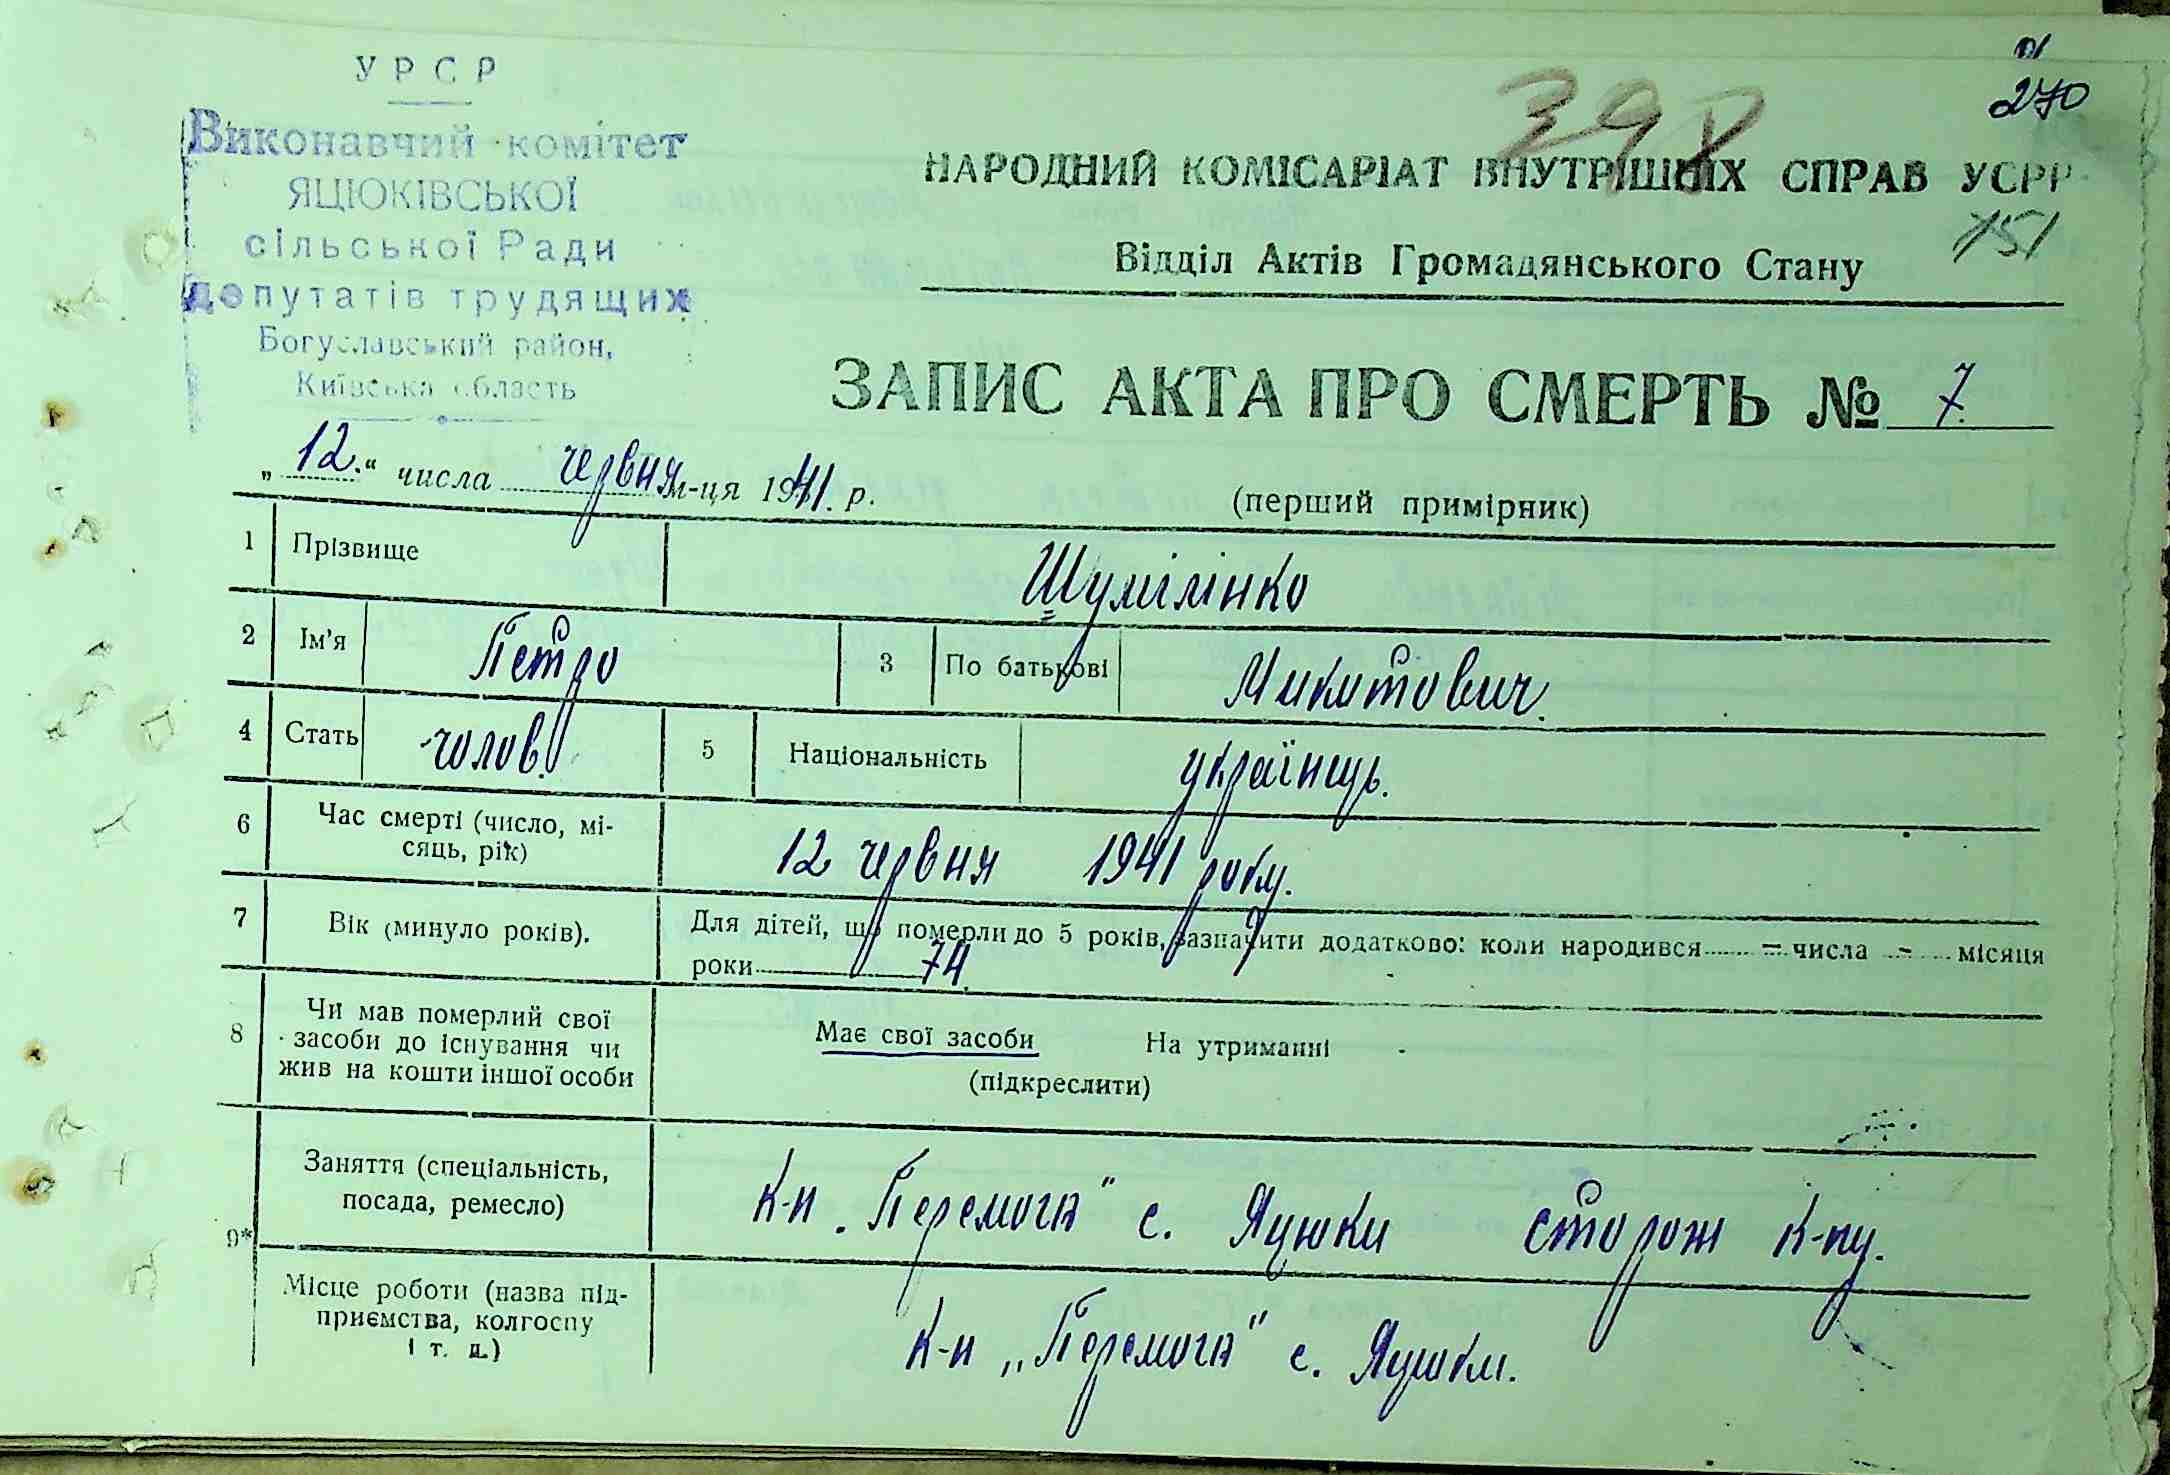 270
УРСР
Виконавчий комітет
ЯЦЮКІВСЬКОЇ
сільської Ради
депутатів трудящих
Богуславський район,
Київська область
398
НАРОДНИЙ КОМІСАРІАТ ВНУТРІШНІХ СПРАВ УСРР
151
Відділ Актів Громадянського Стану
ЗАПИС АКТА ПРО СМЕРТЬ № 7.
„12.“ числа червня м-ця 1941. р.
(перший примірник)
1 Прізвище Шумілінко
2 Ім’я Петро 3 По батькові Микитович.
4 Стать чолов. 5 Національність українець.
6 Час смерті (число, мі-
сяць, рік) 12 червня 1941 року.
7 Вік (минуло років). Для дітей, що померли до 5 років, зазначити додатково: коли народився - числа - місяця
роки 74.
8 Чи мав померлий свої
засоби до існування чи
жив на кошти іншої особи
Має свої засоби На утриманні
(підкреслити)
9* Заняття (спеціальність,
посада, ремесло)
К-п „Перемога" с. Яцюки сторож к-пу.
Місце роботи (назва під-
приємства, колгоспу
і т. д.)
К-п „Перемога" с. Яцюки.